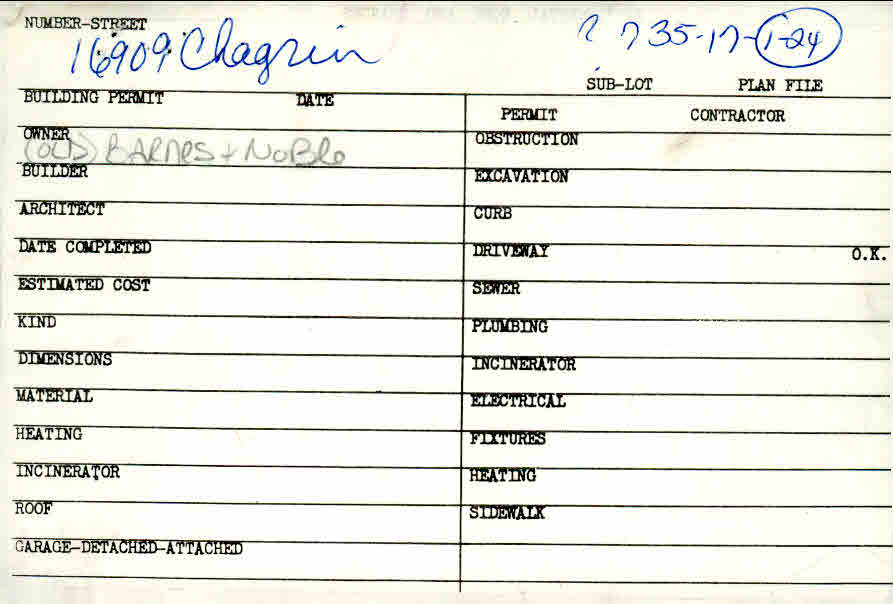 NUMBER-STREET
16909 Chagrin
? 735-17-1-24
SUB-LOT PLAN FILE
BUILDING PERMIT DATE
PERMIT CONTRACTOR
OWNER
(OLD) BARNES + NoBLe
OBSTRUCTION
BUILDER
EXCAVATION
ARCHITECT
CURB
DATE COMPLETED
DRIVEWAY O.K.
ESTIMATED COST
SEWER
KIND
PLUMBING
DIMENSIONS
INCINERATOR
MATERIAL
ELECTRICAL
HEATING
FIXTURES
INCINERATOR
HEATING
ROOF
SIDEWALK
GARAGE-DETACHED-ATTACHED